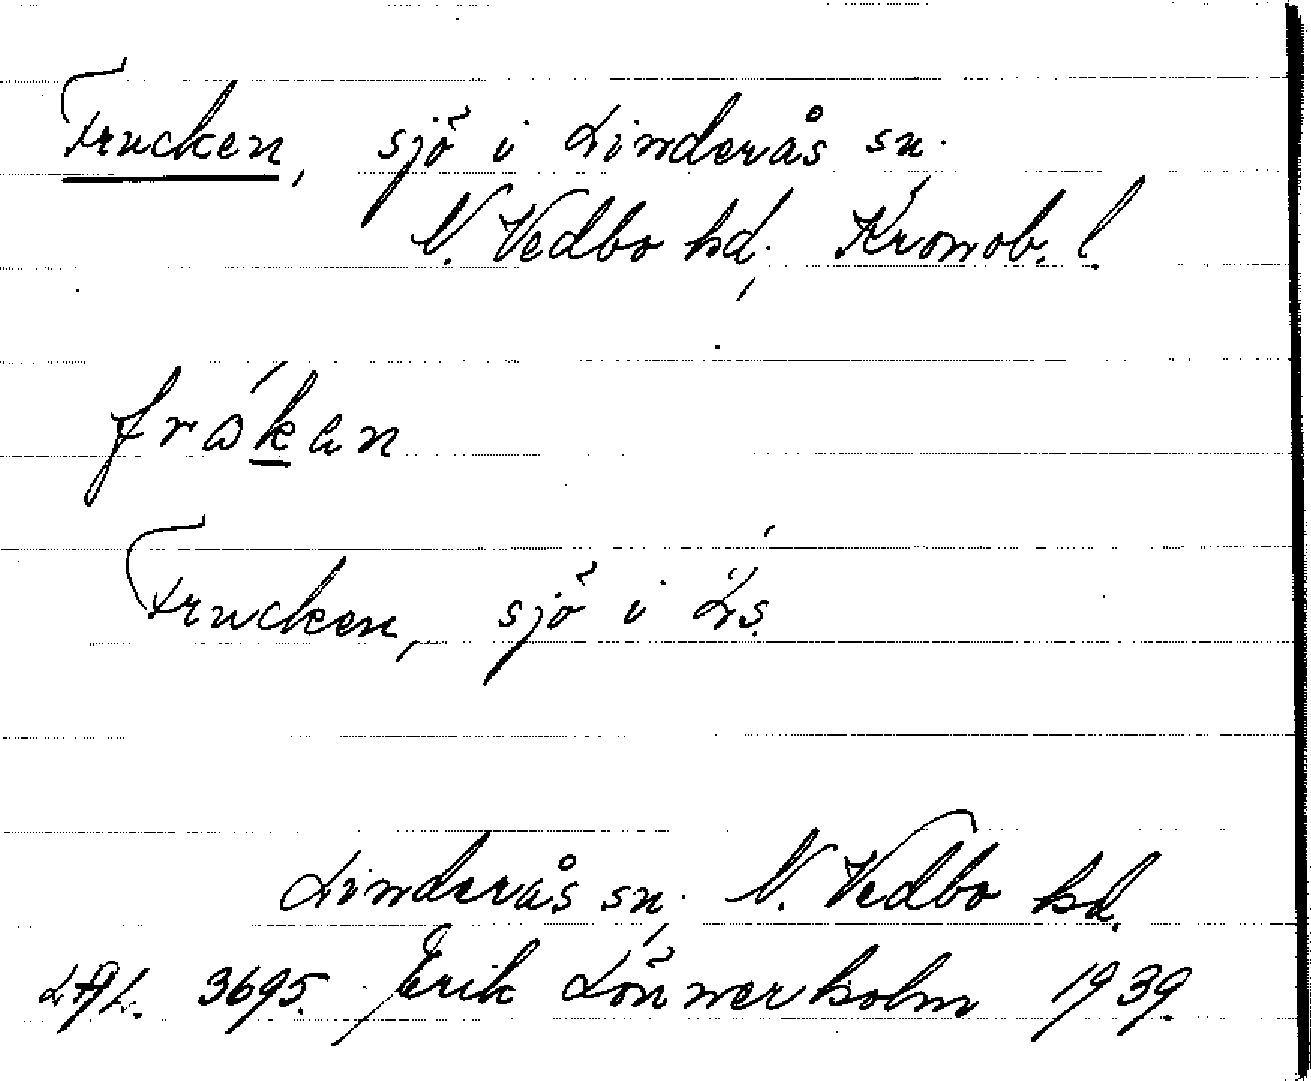 Frucken, sjö i Linderås sn.
N. Vedbo hd, Kronob. l.
fråkan
Frucken, sjö i Ls.
Linderås sn, N. Vedbo hd.
3695. Erik Lönnerholm 1939.